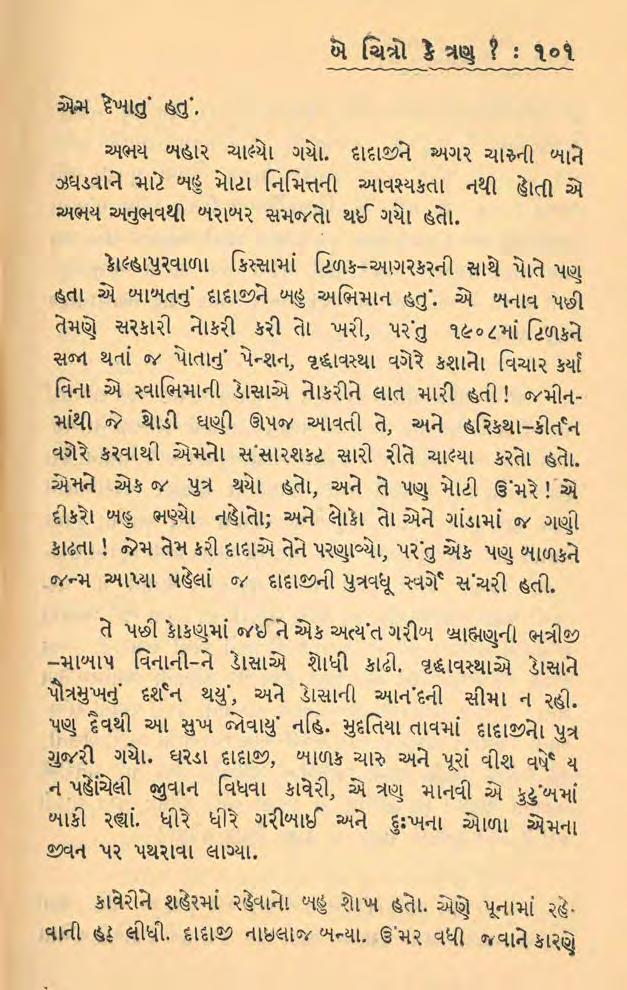 બે ચિત્રો કે ત્રણ ? : ૧૦૧
એમ દેખાતું હતું.
અભય બહાર ચાલ્યો ગયો. દાદાજીને અગર ચારુની બાને
ઝઘડવાને માટે બહુ મોટા નિમિત્તની આવશ્યકતા નથી હોતી એ
અભય અનુભવથી બરાબર સમજતો થઈ ગયો હતો.
કોલ્હાપુરવાળા કિસ્સામાં ટિળક-આગરકરની સાથે પોતે પણ
હતા એ બાબતનું દાદાજીને બહુ અભિમાન હતું. એ બનાવ પછી
તેમણે સરકારી નોકરી કરી તો ખરી, પરંતુ ૧૯૦૮માં ટિળકને
સજા થતાં જ પોતાનું પેન્શન, વૃદ્ધાવસ્થા વગેરે કશાનો વિચાર કર્યા
વિના એ સ્વાભિમાની ડોસાએ નોકરીને લાત મારી હતી! જમીન-
માંથી જે થોડી ઘણી ઊપજ આવતી તે, અને હરિકથા-કીર્તન
વગેરે કરવાથી એમનો સંસારશકટ સારી રીતે ચાલ્યા કરતો હતો.
એમને એક જ પુત્ર થયો હતો, અને તે પણ મોટી ઉંમરે! એ
દીકરો બહુ ભણ્યો નહોતો; અને લોકો તો એને ગાંડામાં જ ગણી
કાઢતા! જેમ તેમ કરી દાદાએ તેને પરણાવ્યો, પરંતુ એક પણ બાળકને
જન્મ આપ્યા પહેલાં જ દાદાજીની પુત્રવધૂ સ્વર્ગે સંચરી હતી.
તે પછી કોકણમાં જઈને એક અત્યંત ગરીબ બ્રાહ્મણની ભત્રીજી
-માબાપ વિનાની-ને ડોસાએ શોધી કાઢી. વૃદ્ધાવસ્થાએ ડોસાને
પૌત્રમુખનું દર્શન થયું, અને ડોસાની આનંદની સીમા ન રહી.
પણ દૈવથી આ સુખ જોવાયું નહિ. મુદતિયા તાવમાં દાદાજીનો પુત્ર
ગુજરી ગયો. ઘરડા દાદાજી, બાળક ચારુ અને પૂરાં વીશ વર્ષે ય
ન પહોંચેલી જુવાન વિધવા કાવેરી, એ ત્રણ માનવી એ કુટુંબમાં
બાકી રહ્યાં. ધીરે ધીરે ગરીબાઈ અને દુઃખના ઓળા એમના
જીવન પર પથરાવા લાગ્યા.
કાવેરીને શહેરમાં રહેવાનો બહુ શોખ હતો. એણે પૂનામાં રહે-
વાની હઠ લીધી. દાદાજી નાઇલાજ બન્યા. ઉંમર વધી જવાને કારણે